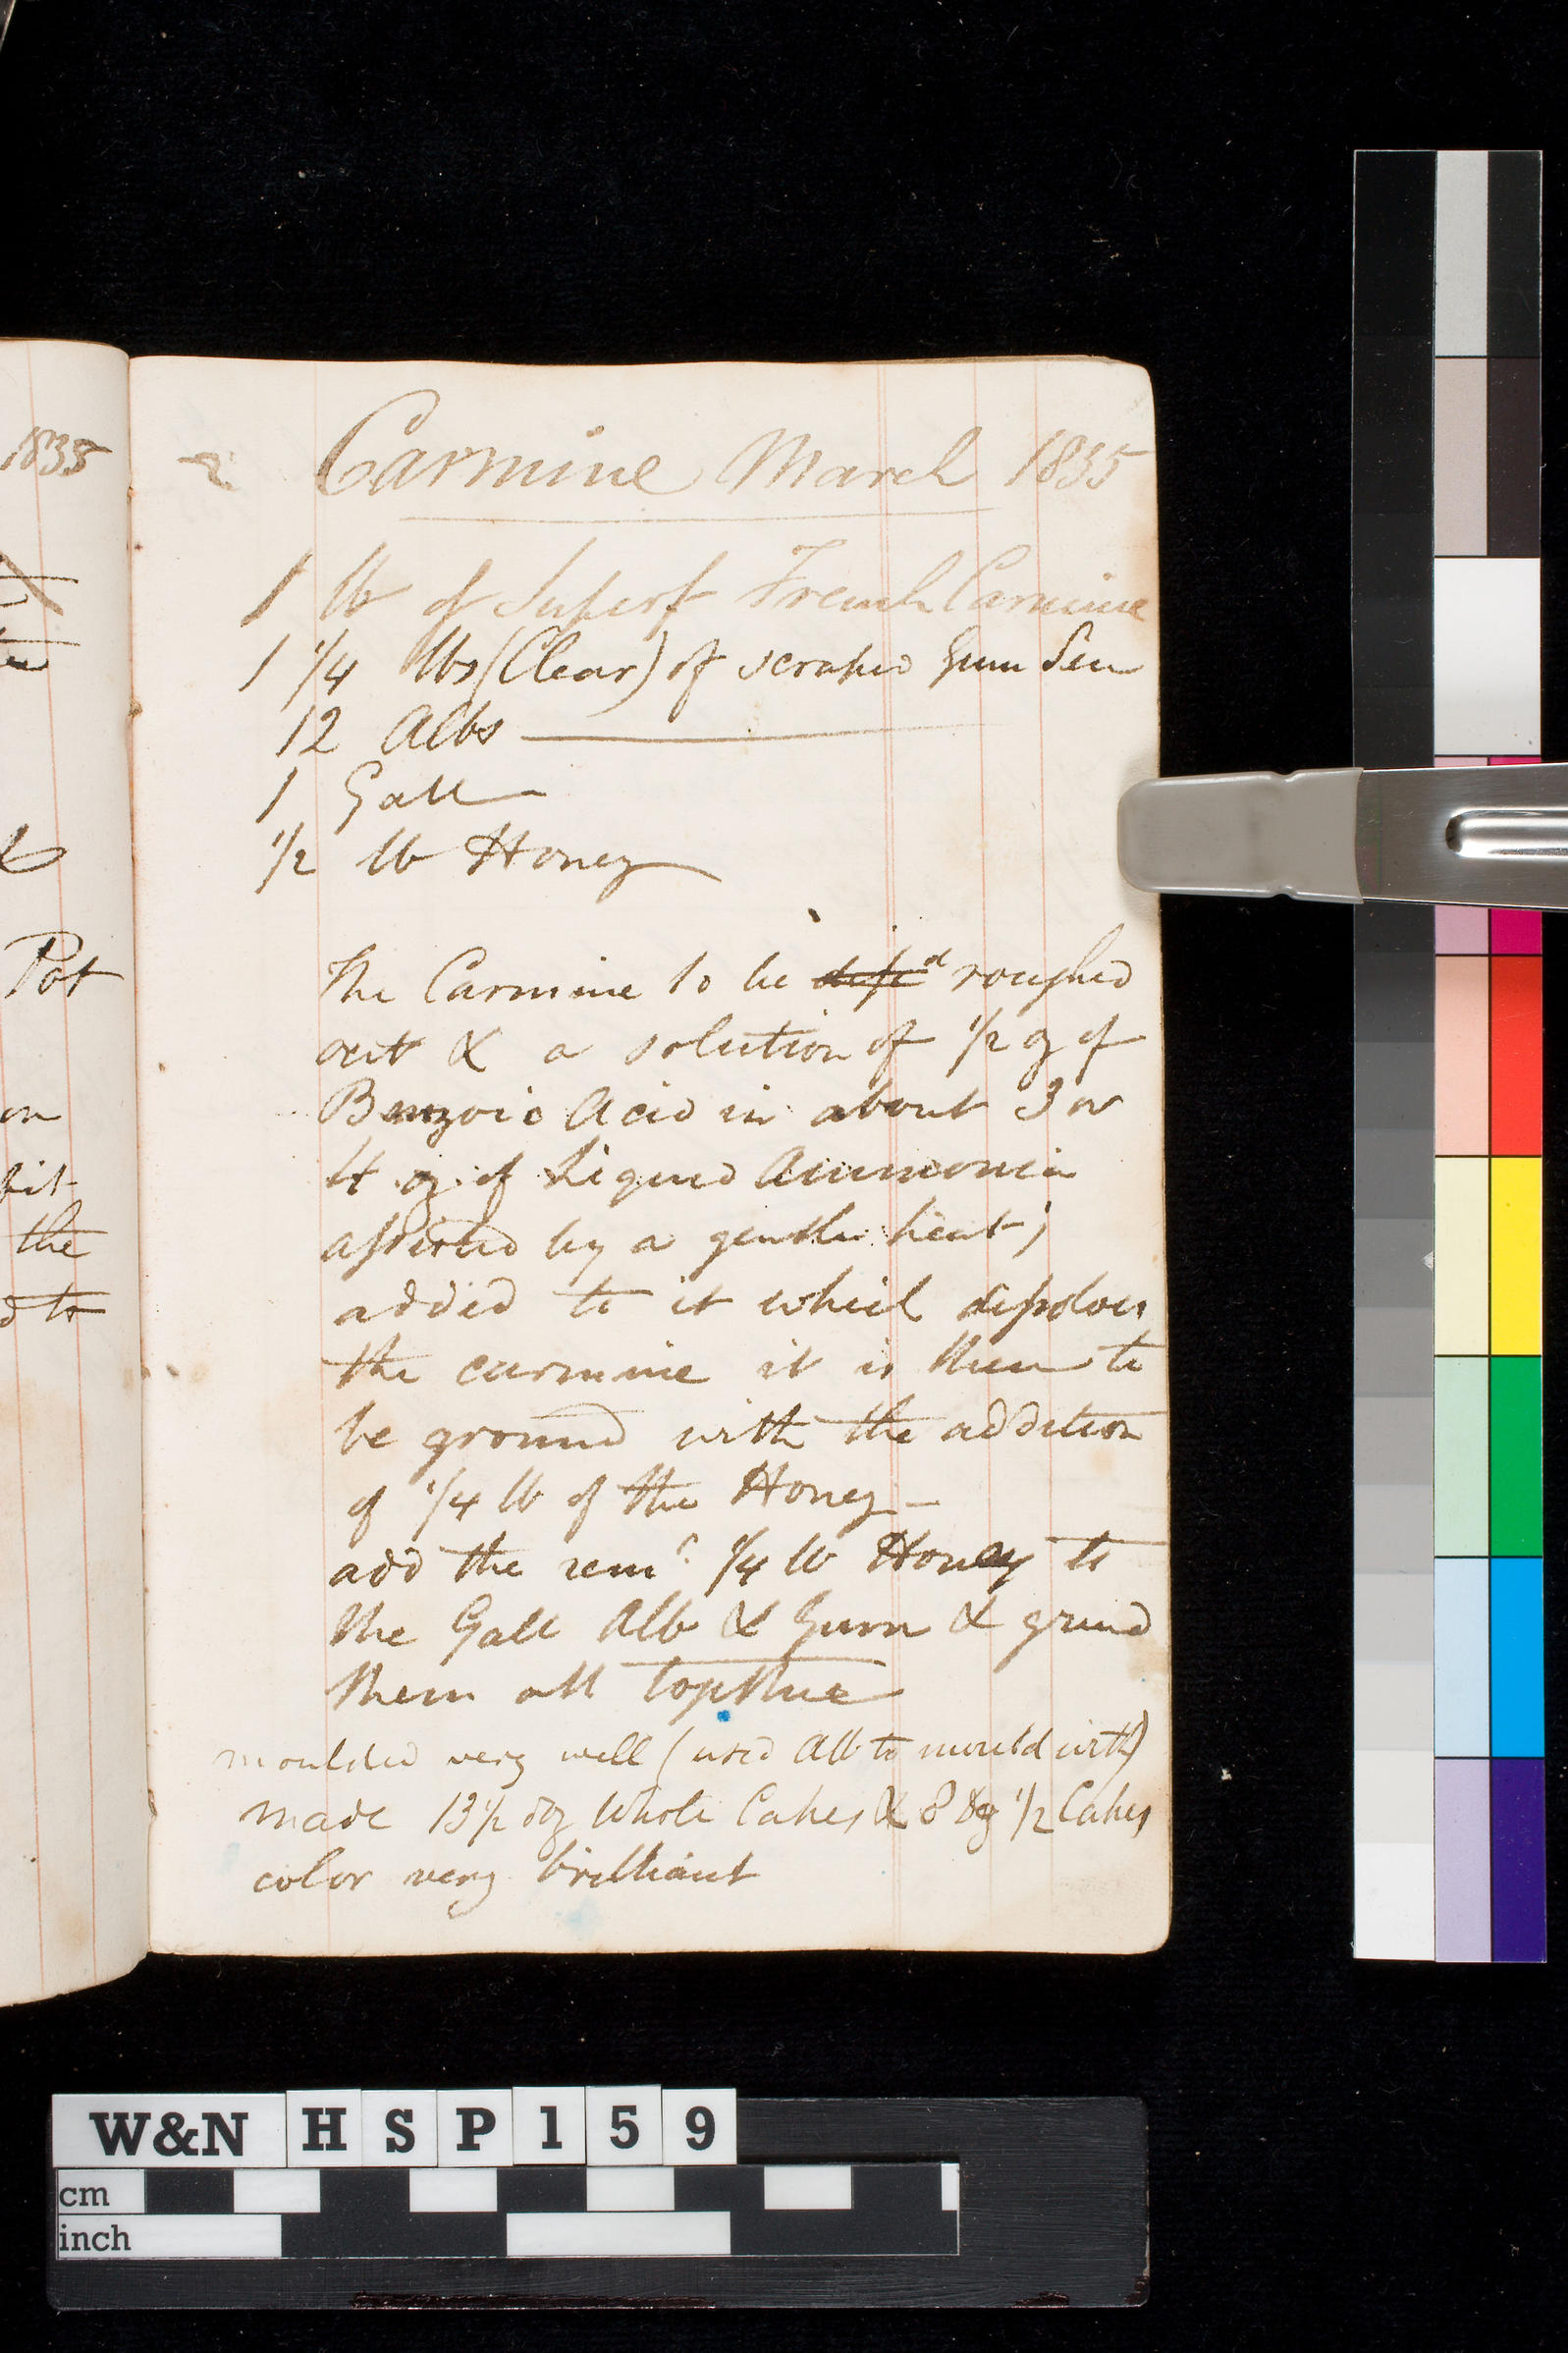 1835
Pot
on
the
Carmine March 1835
1 lb of Superf French Carmine
1 1/4 lbs (Clear) of scraped Gum Sen
12 Albs
1 Gall
1/2 lb Honey
The Carmine to be roughed
out & a solution of 1/2 oz of
Benzoic Acid in about 3 or
4 oz of Liquid Ammonia
assisted by a gentle heat;
added to it which dissolves
the carmine it is then to
be ground with the addition
of 1/4 lb of the Honey -
add the remr 1/4 lb Honey to
the Gall Alb & Gum & grind
them all together
moulded very well (used Alb to mould with)
made 13 1/2 doz Whole Cakes & 8 doz 1/2 Cakes
color very brilliant
W&N HSP159
cm
inch